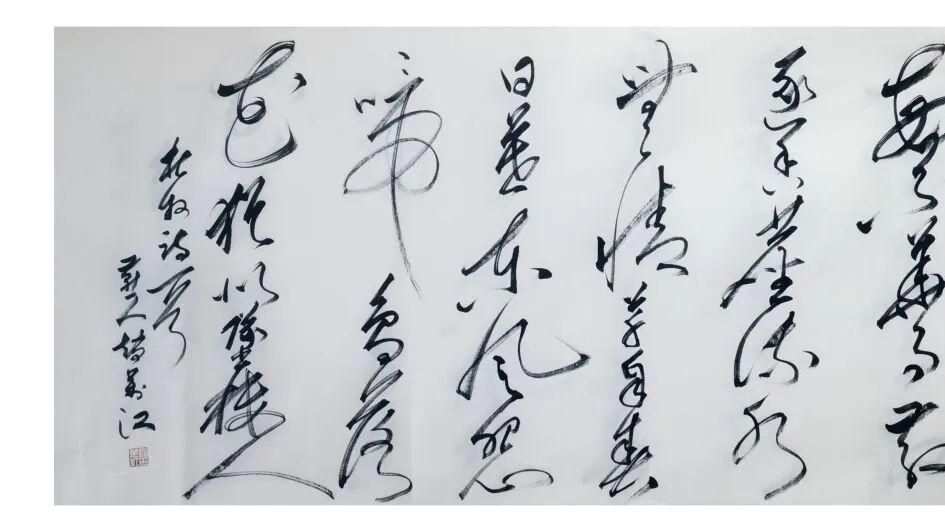 繁華事散
逐香塵流水
無情草自春
日暮東風怨
啼鳥落
花猶似墜樓人
杜牧詩一首
人 江